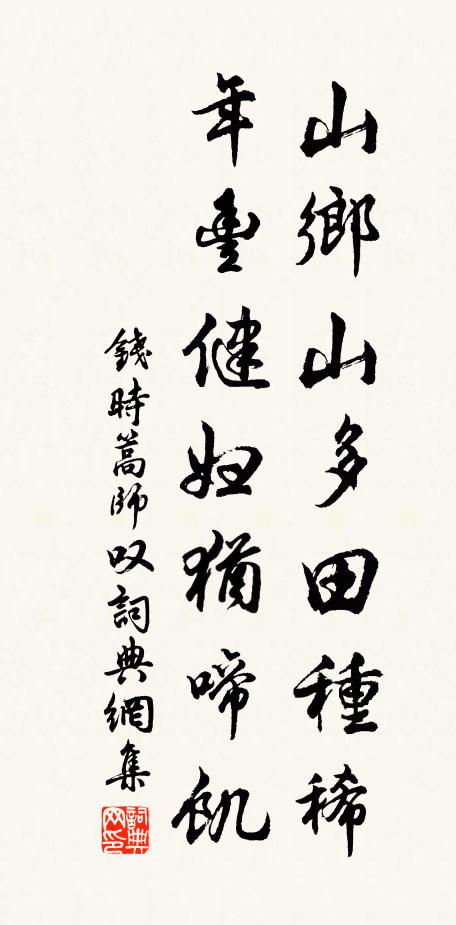 山鄉山多田種稀
年豐健婦猶啼飢
錢時蒿師叹詞典網集
詞典网印